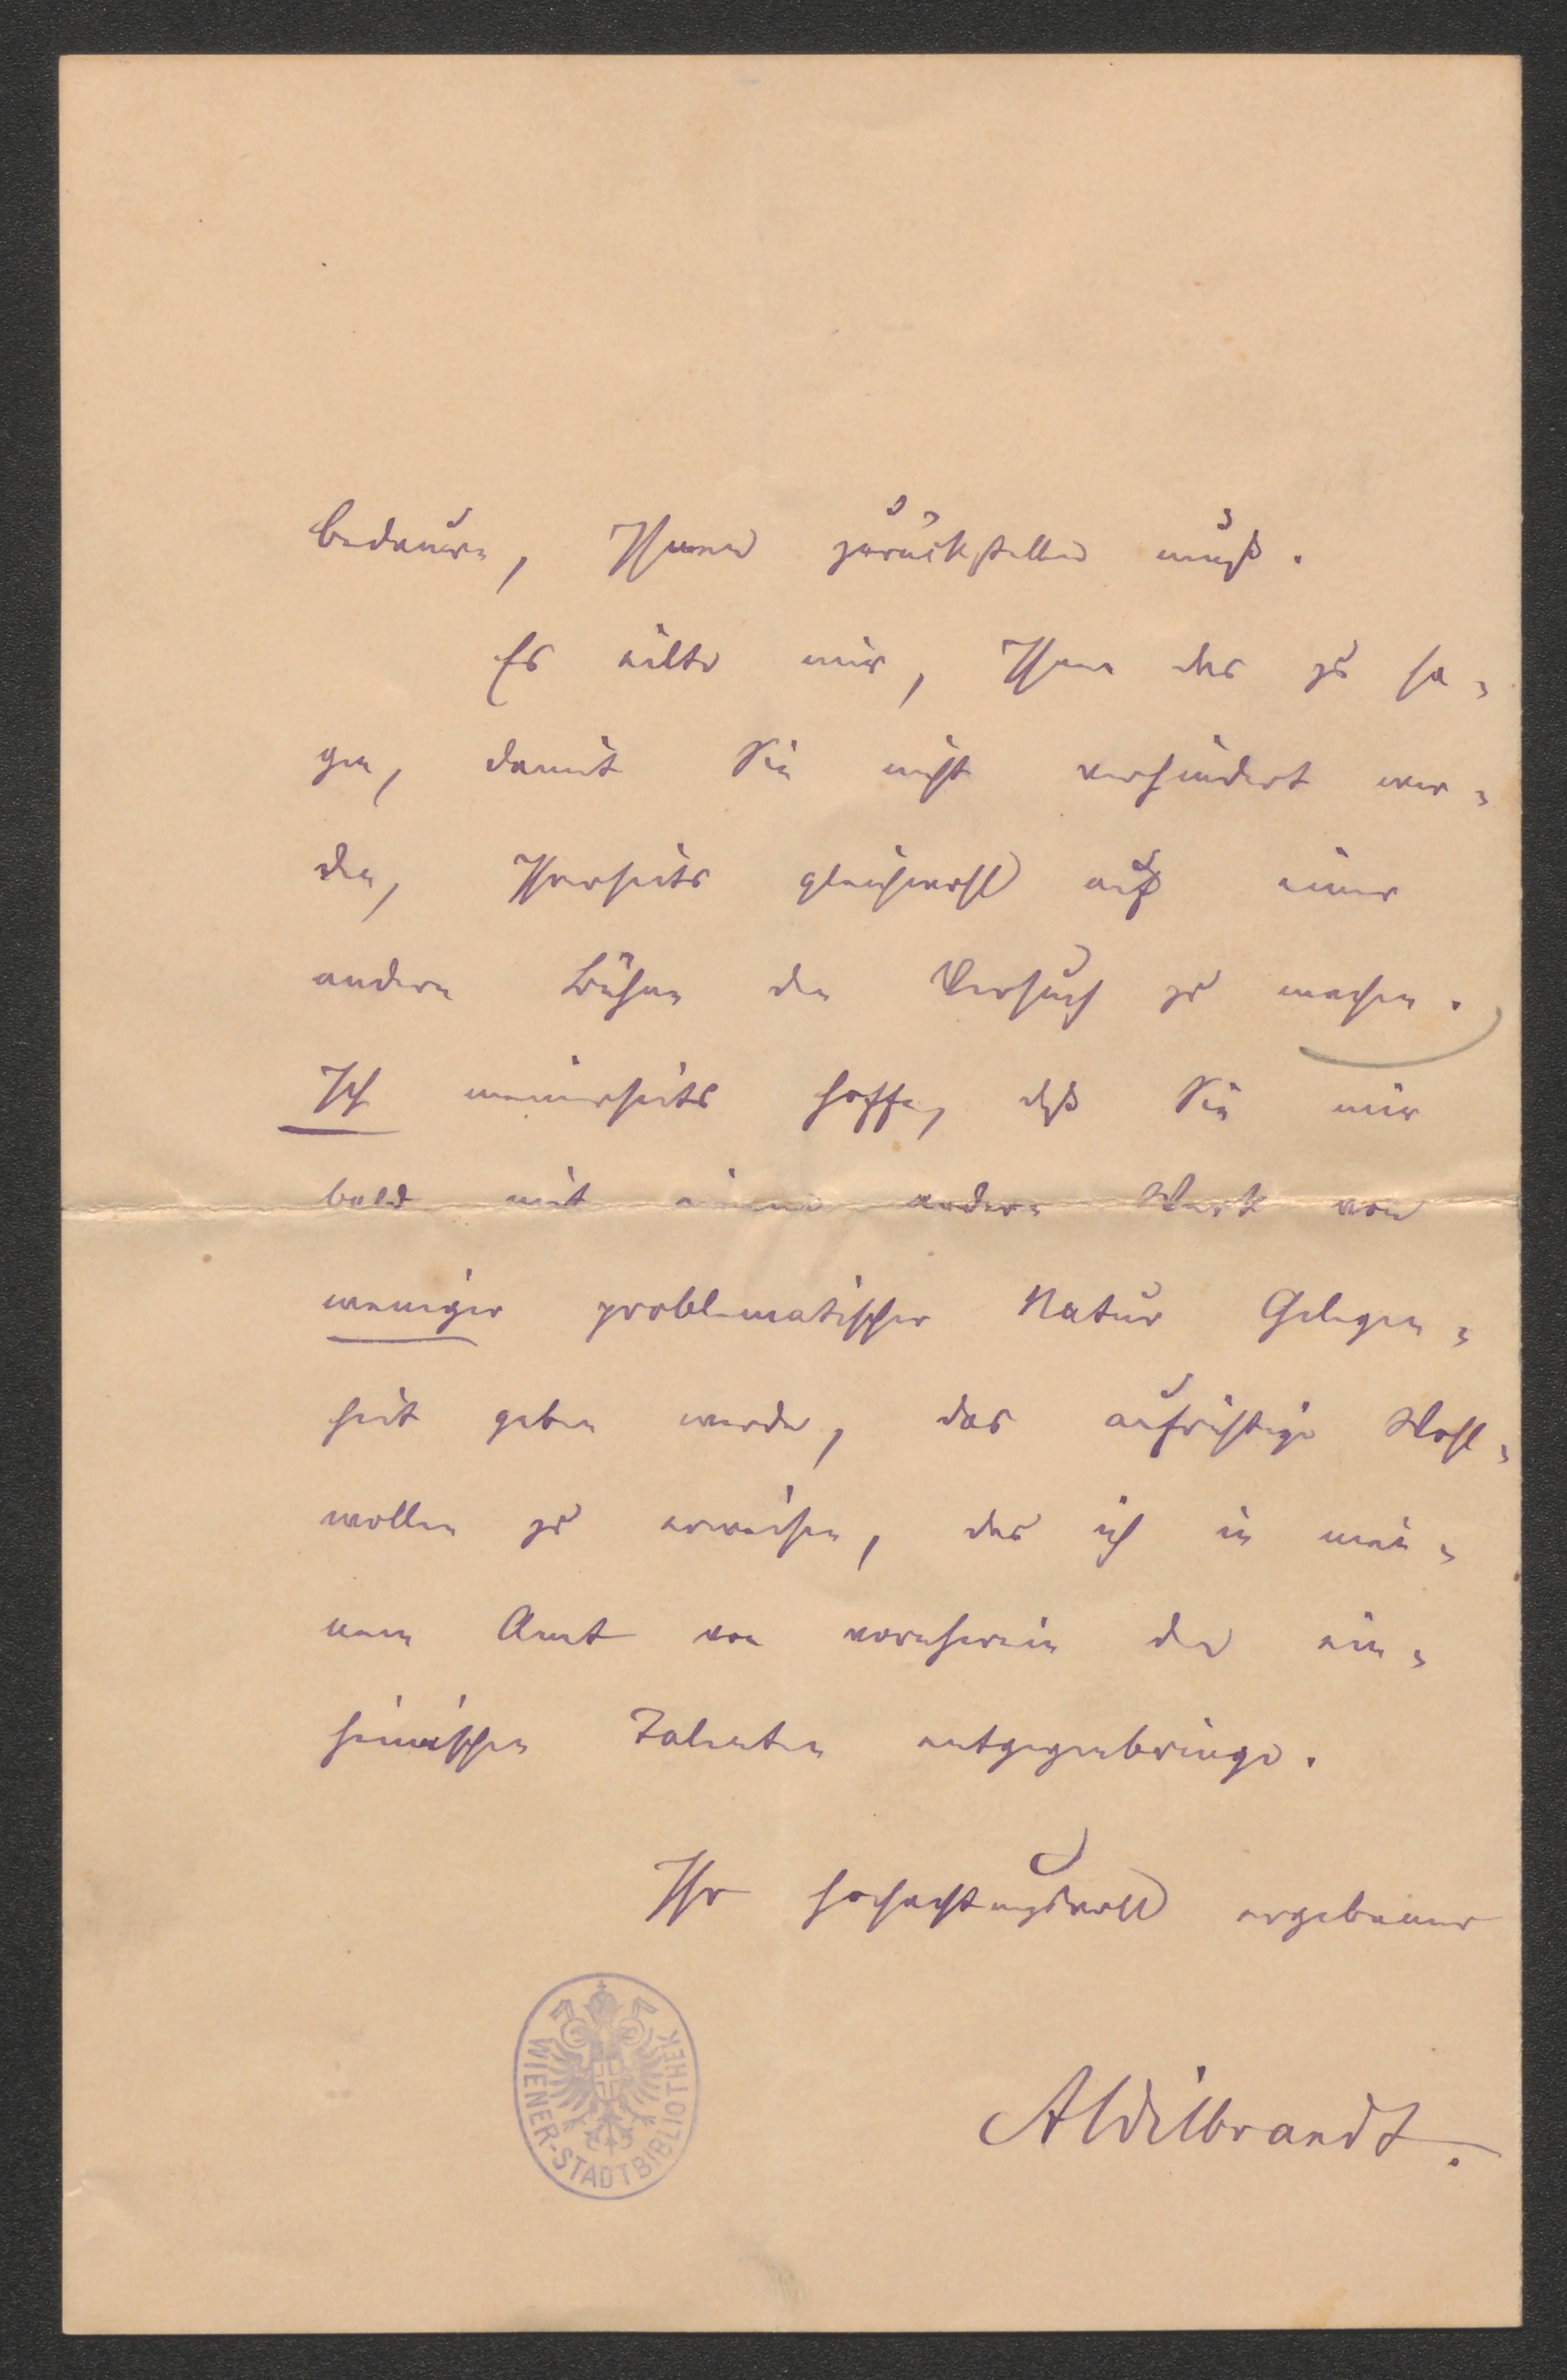 bedauere, Ihnen zurückstellen muß.
Es eilte mir, Ihnen das zu sa-
gen, damit Sie nicht verhindert wer-
den, Ihrerseits gleichwohl auf einer
andern Bühne den Versuch zu machen.
Ich meinerseits hoffe, daß Sie mir
bald mit einem andern Werk von
weniger problematischer Natur Gelegen-
heit geben werden, das aufrichtige Wohl-
wollen zu erweisen, das ich in mei-
nem Amt von vornherein den ein-
heimischen Talenten entgegenbringe.
Ihr hochachtungsvoll ergebener
AWilbrandt.
WIENER-STADTBIBLIOTHEK